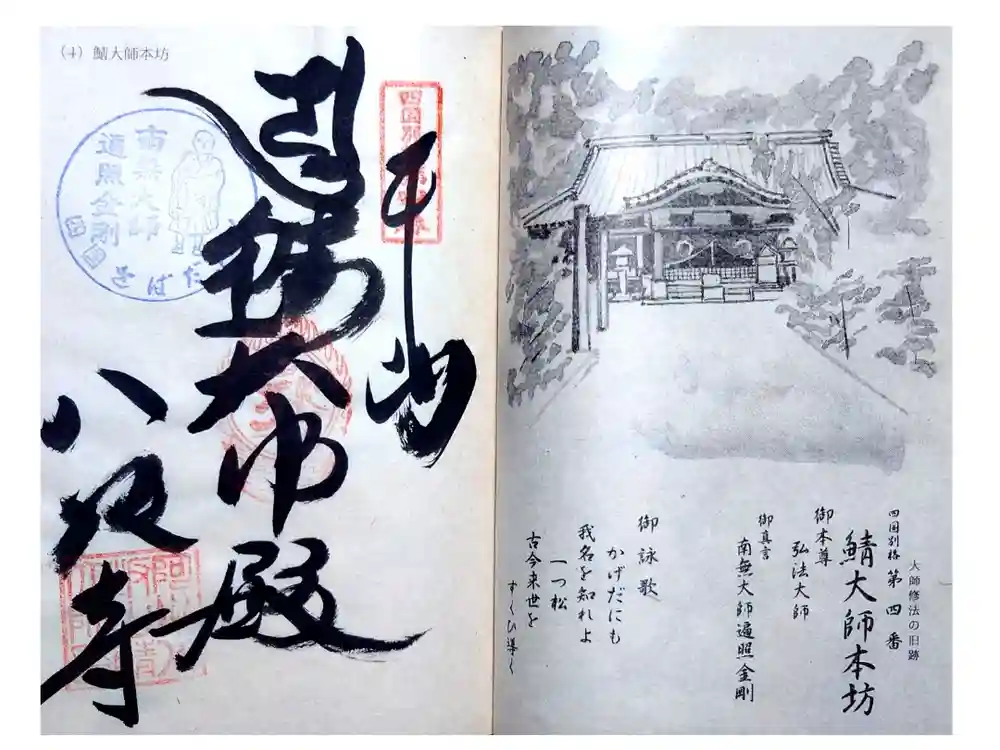 （4）鯖大師本坊
鯖大師殿
八坂寺
南無大師
遍照金剛
四国
さばだ
大師修法の旧跡
四国別格 第四番
鯖大師本坊
御本尊
弘法大師
御真言
南無大師遍照金剛
御詠歌
かげだにも
我名を知れよ
一つ松
古今来世を
すくひ導く